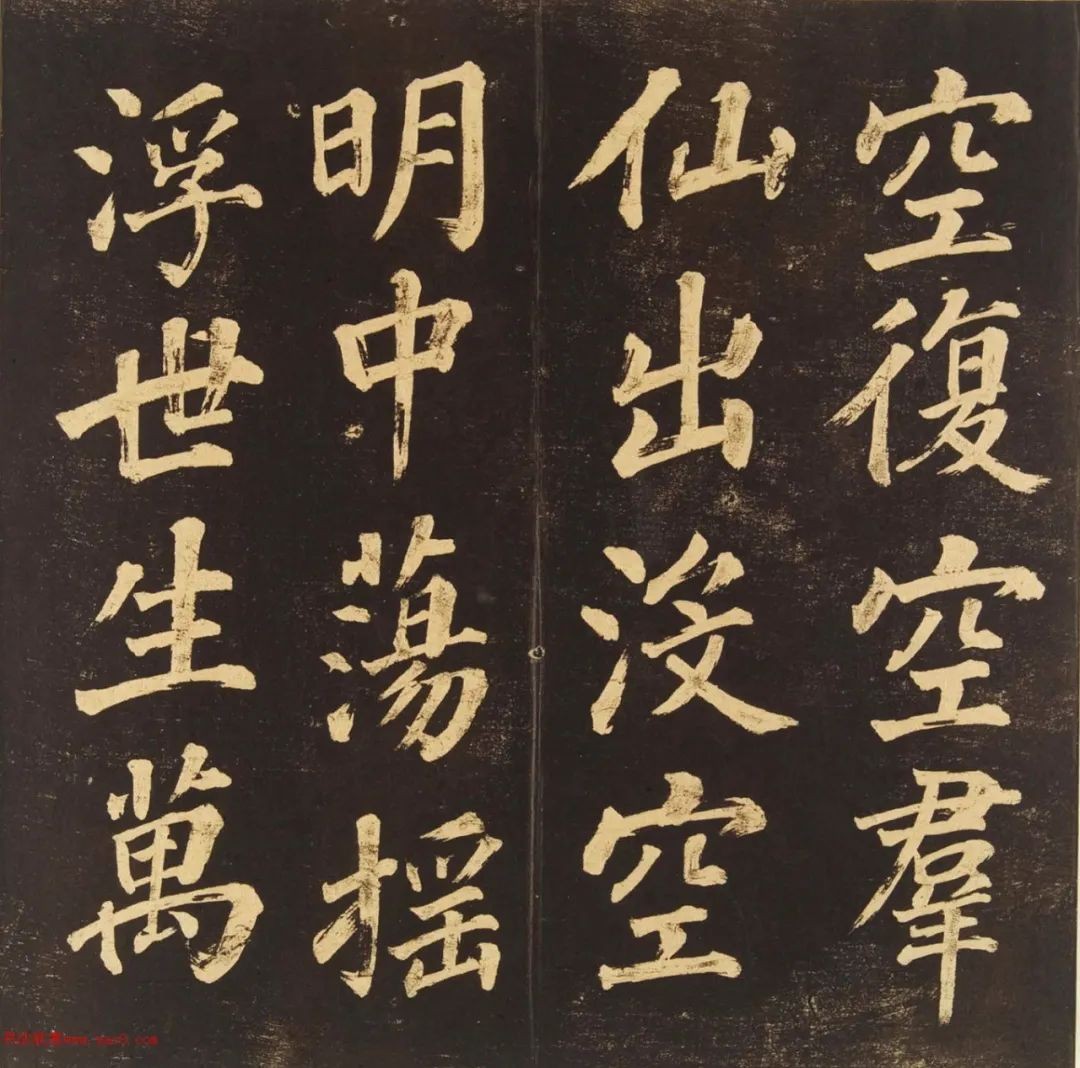 空復空羣
仙出没空
明中蕩摇
浮世生萬